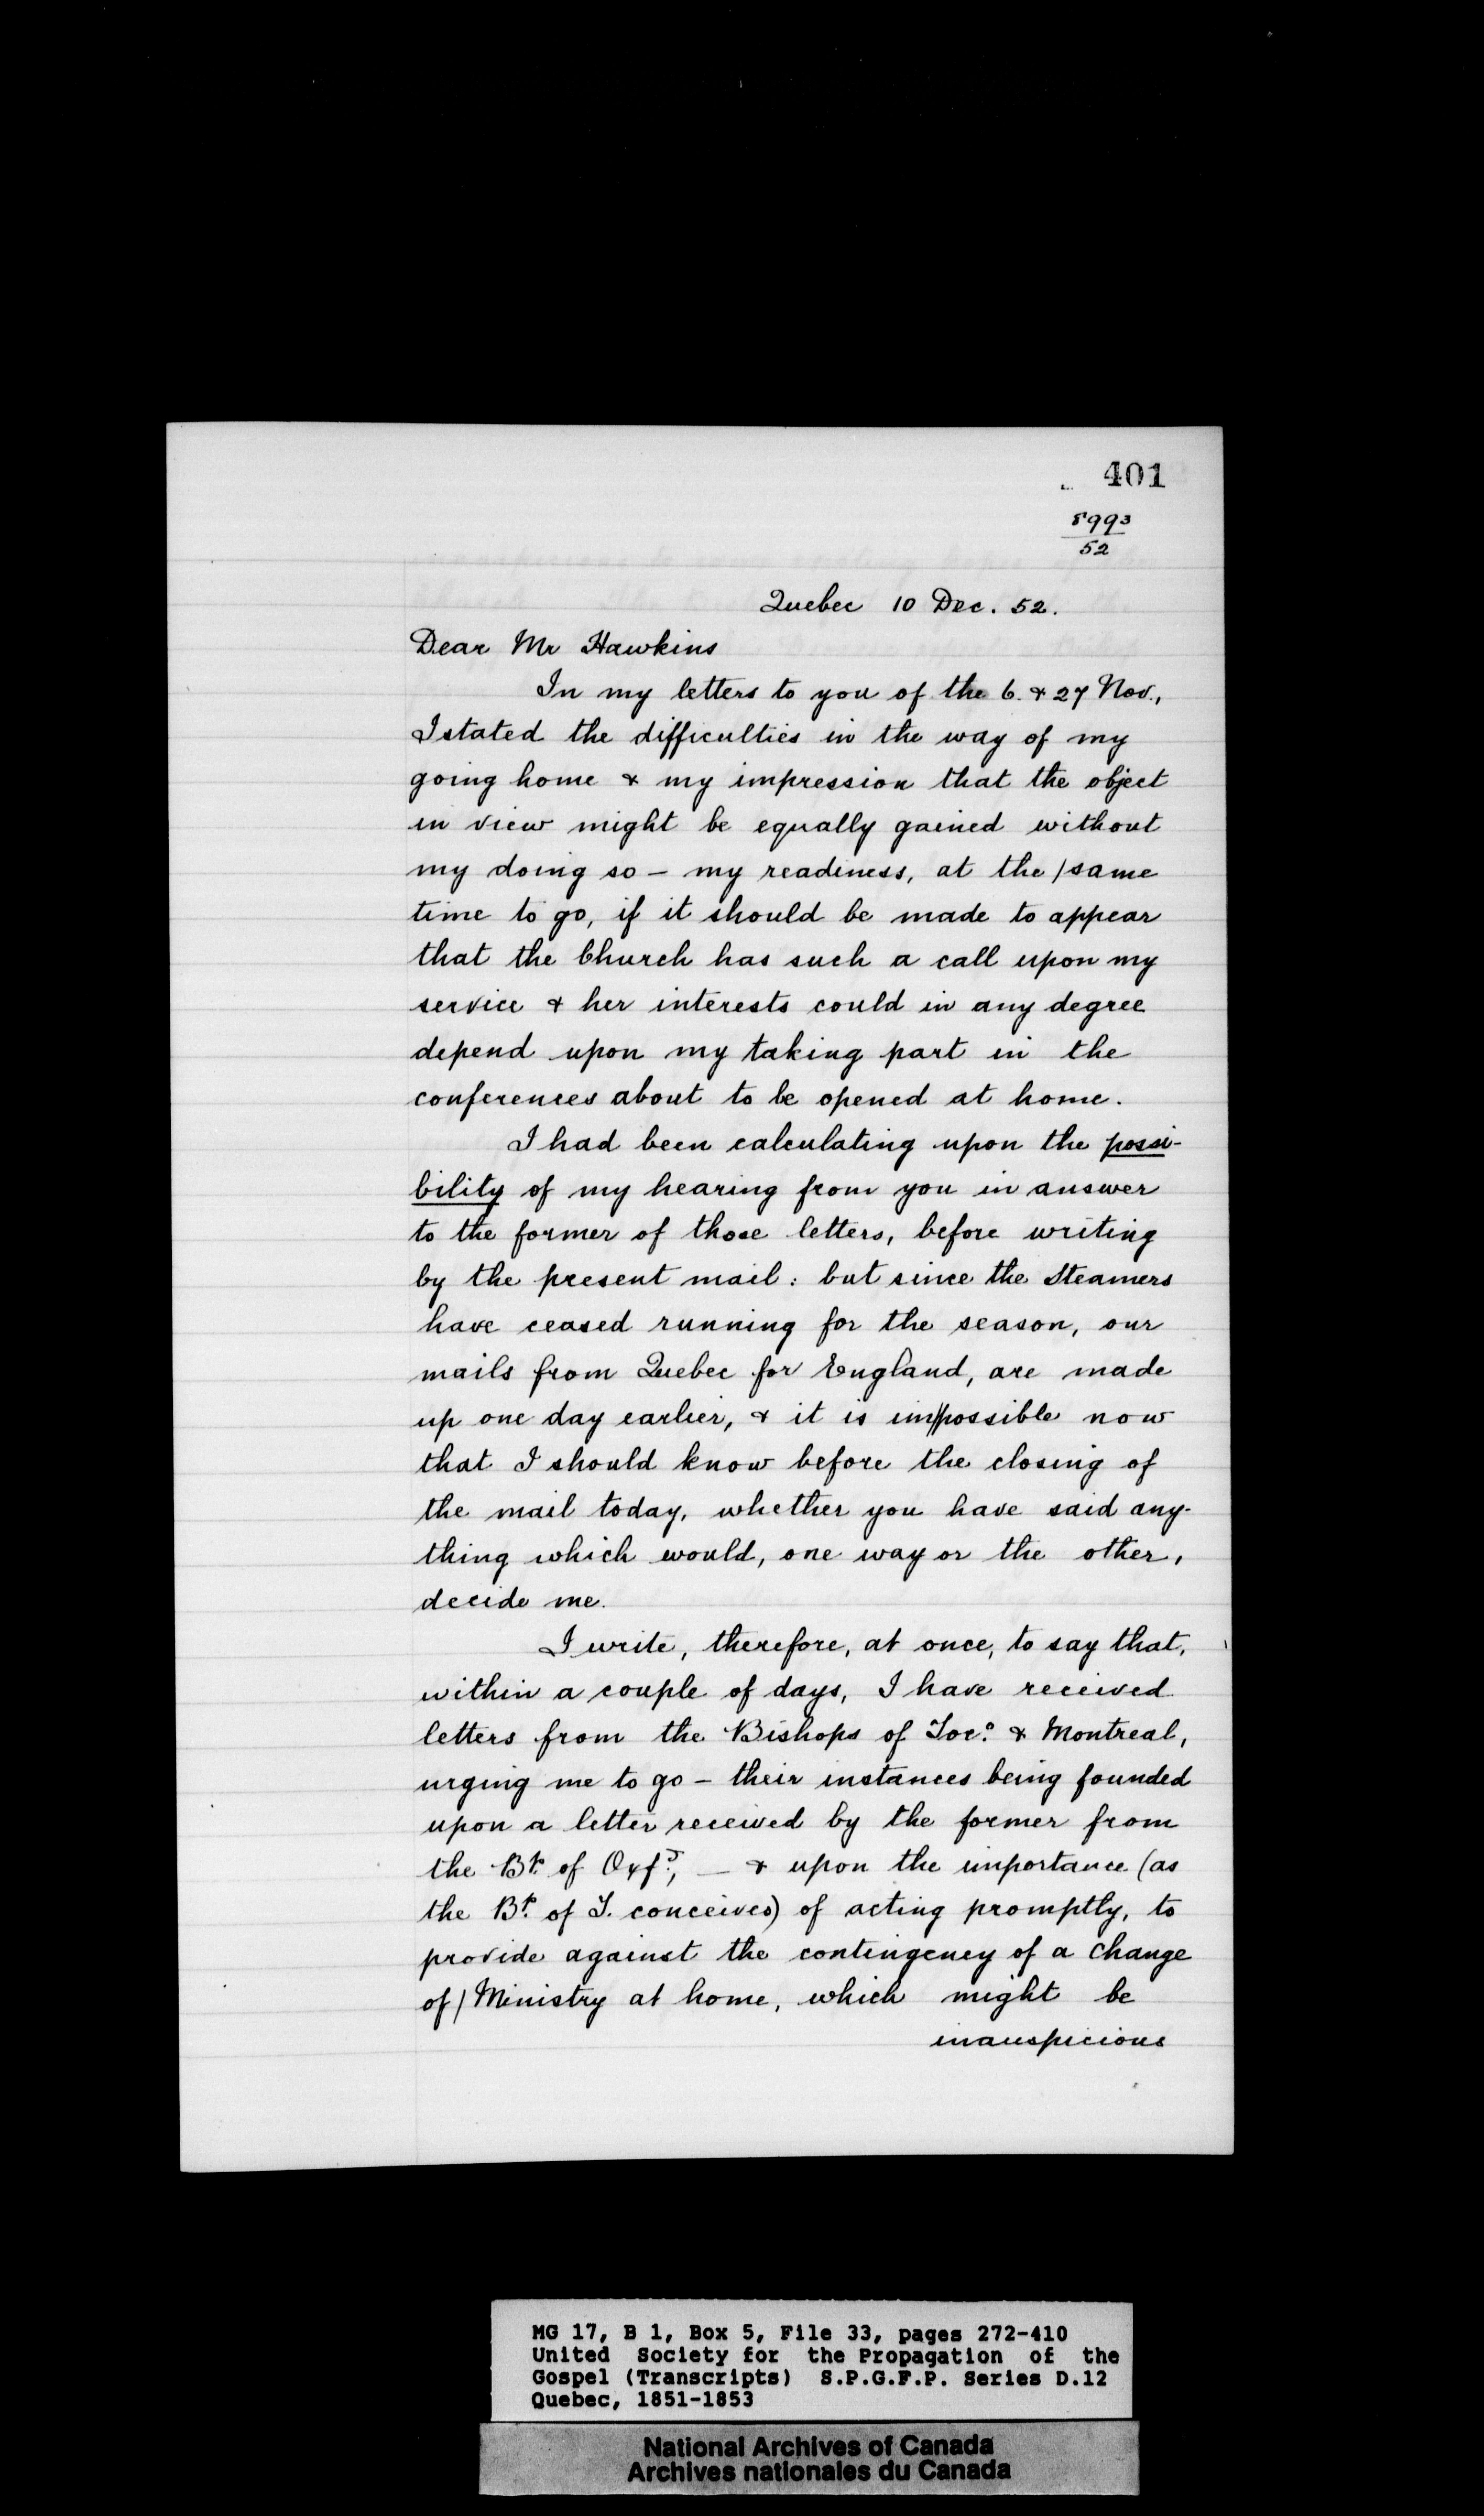 401
8993
52
Quebec 10 Dec. 52.
Dear Mr Hawkins
In my letters to you of the 6. & 27 Nov.,
I stated the difficulties in the way of my
going home & my impression that the object
in view might be equally gained without
my doing so – my readiness, at the / same
time to go, if it should be made to appear
that the Church has such a call upon my
service & her interests could in any degree
depend upon my taking part in the
conferences about to be opened at home.
I had been calculating upon the possi-
bility of my hearing from you in answer
to the former of those letters, before writing
by the present mail: but since the Steamers
have ceased running for the season, our
mails from Quebec for England, are made
up one day earlier, & it is im//possible now
that I should know before the closing of
the mail today, whether you have said any-
thing which would, one way or the other,
decide me.
I write, therefore, at once, to say that,
within a couple of days, I have received
letters from the Bishops of Toro. & Montreal,
urging me to go – their instances being founded
upon a letter received by the former from
the Bp. of Oxfd., — & upon the importance (as
the Bp. of T. conceives) of acting promptly, to
provide against the contingency of a change
of / Ministry at home, which might be
inauspicious
MG 17, B 1, Box 5, File 33, pages 272-410
United Society for the Propagation of the
Gospel (Transcripts) S.P.G.F.P. Series D.12
Quebec, 1851-1853
National Archives of Canada
Archives nationales du Canada